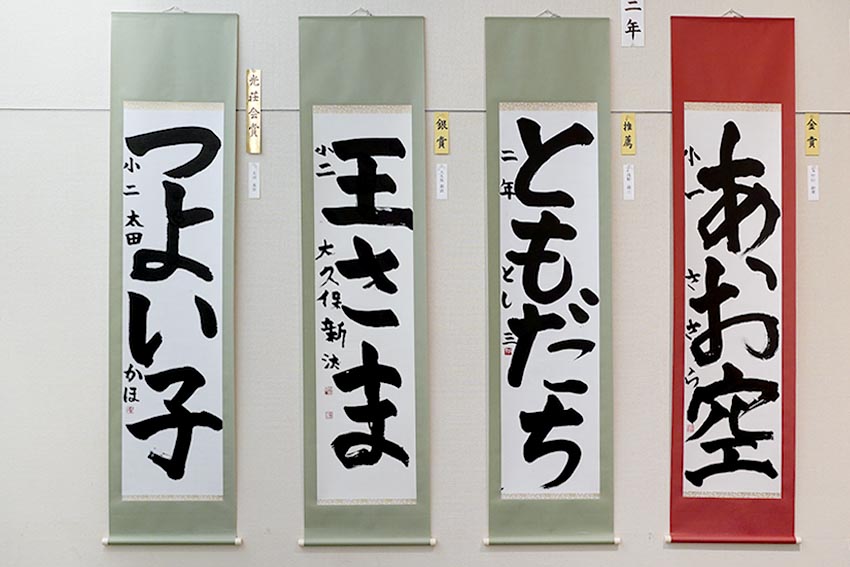 二年
金賞
あお空
小一
ささら
推薦
ともだち
二年
とし三
銀賞
王さま
小二
大久保
光荘会賞
つよい子
小二
太田
かほ